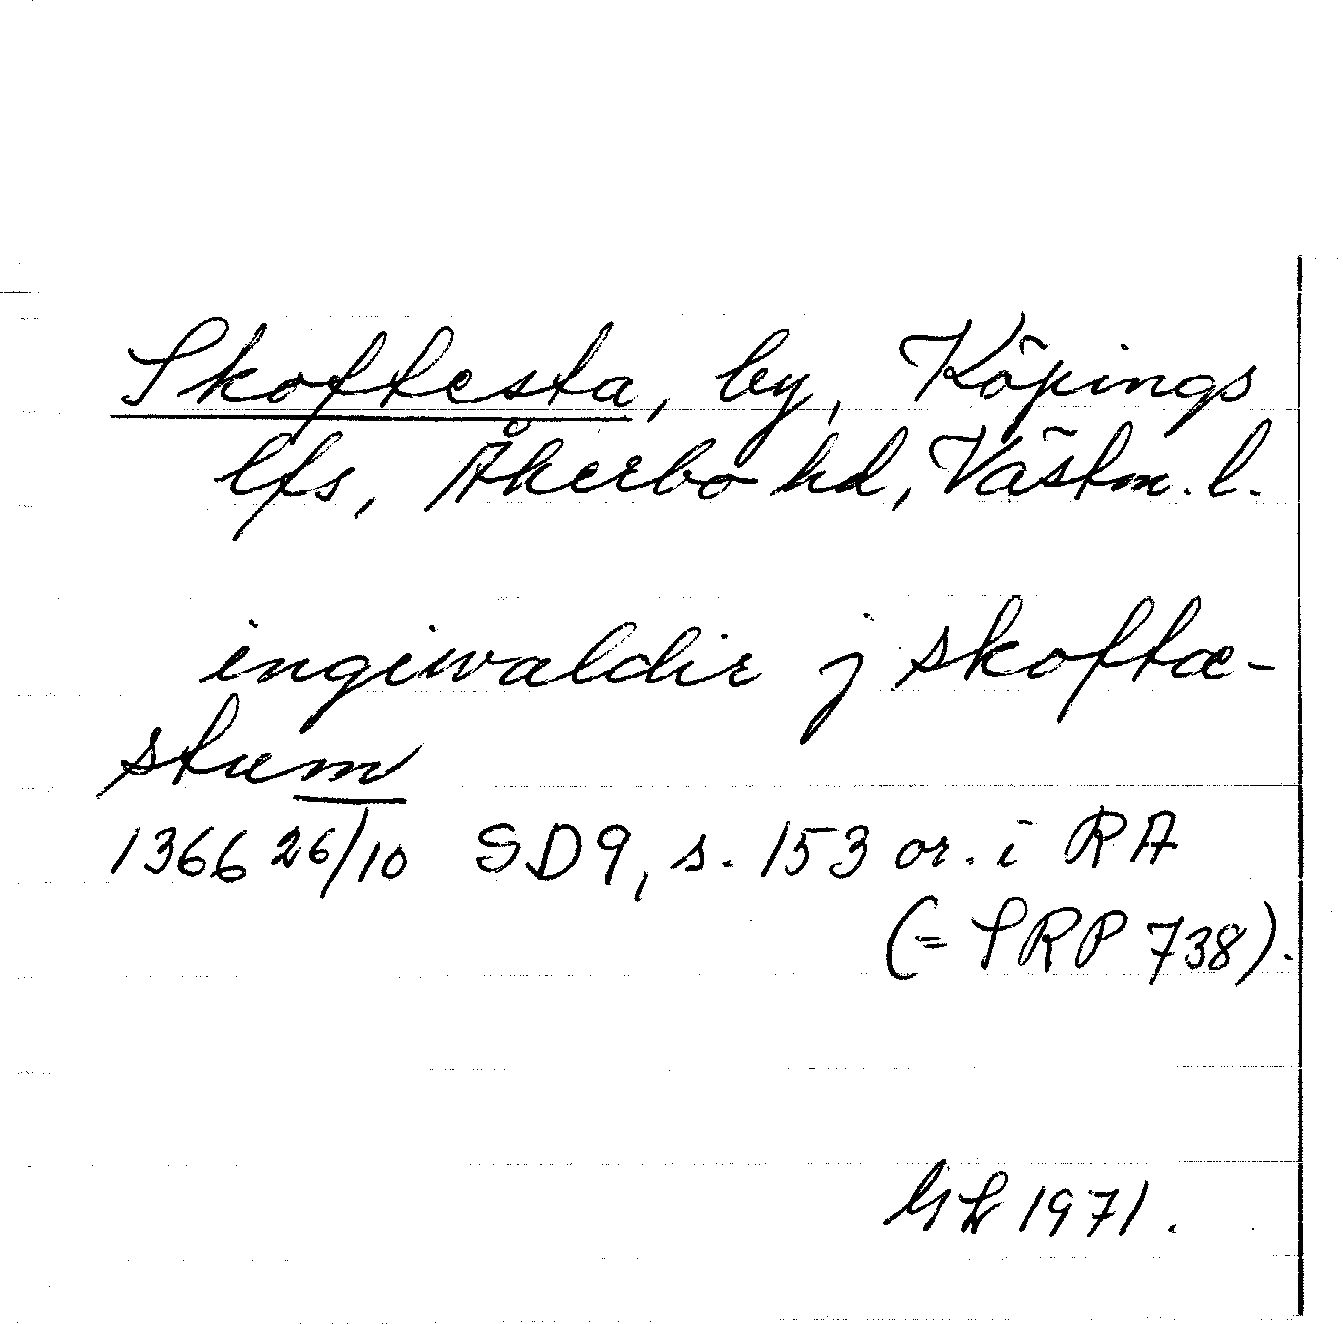 Skoftesta, by, Köpings
lfs, Åkerbo hd, Västm. l.
ingiwaldir j skoftæ-
stum
1366 26/10 SD9, s. 153 or. i RA
(= SRP 738).
GL 1971.